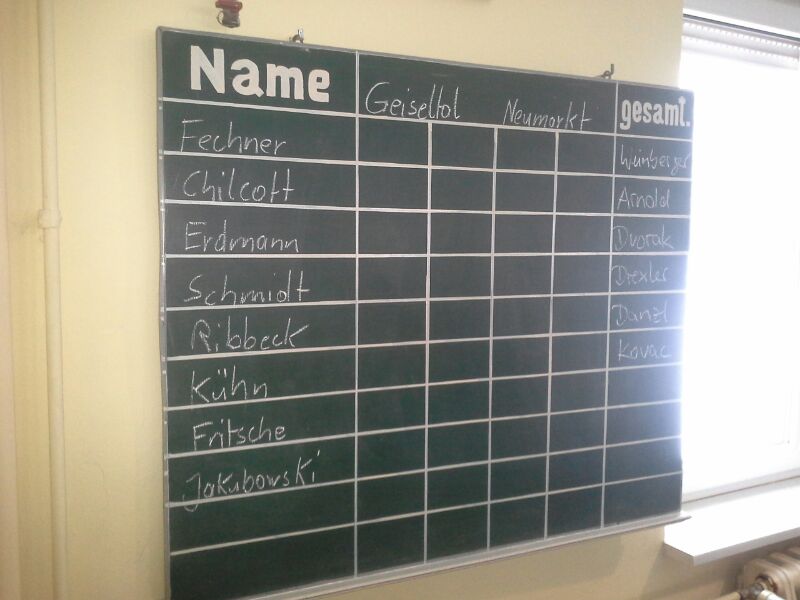 Name Geiseltal Neumarkt gesamt.
Fechner Weinberger
Chilcott Arnold
Erdmann Dvorak
Schmidt Drexler
Ribbeck Danzl
Kühn Kovac
Fritsche
Jakubowski